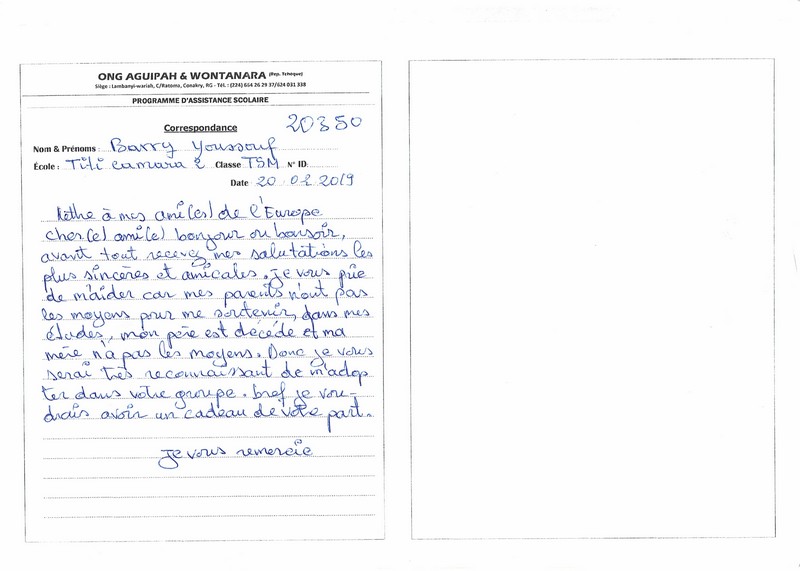 ONG AGUIPAH & WONTANARA (Rep. Tchèque)
Siège : Lambanyi-wariah, C/Ratoma, Conakry, RG - Tél. : (224) 664 26 29 37/624 031 338
PROGRAMME D'ASSISTANCE SCOLAIRE
Correspondance
20350
Nom & Prénoms : Barry Youssouf
École : Titi camara 2 Classe TSM N° ID
Date 20.02.2019
à mes ami(es) de l'Europe
cher(e) ami(e) bonjour ou bonsoir,
avant tout recevez mes salutations les
plus sincères et amicales. je vous prie
de m'aider car mes parents n'ont pas
les moyens pour me soutenir, dans mes
études, mon père est décédé et ma
mère n'a pas les moyens. Donc je vous
serai très reconnaissant de m'adop
ter dans votre groupe. bref je vou-
drais avoir un cadeau de votre part.
je vous remercie